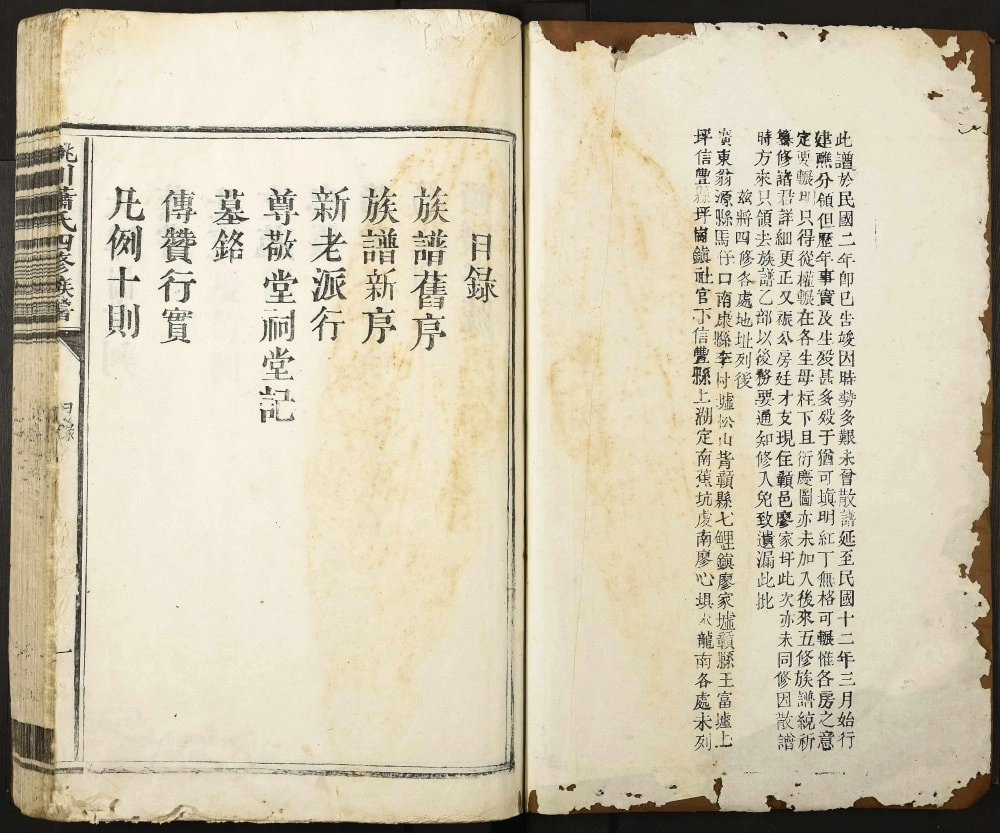 此譜於民國二年卽已告竣因時勢多艱未曾散譜延至民國十二年三月始行
建醮分領但歷年事實及生歿甚多歿于猶可塡明紅丁無格可輾惟各房之意
定要輾明只得從權輾在各生母柱下且衍慶圖亦未加入後來五修族譜統祈
纂修諸君詳細更正又振公房廷才支現住贛邑廖家圩此次亦未同修因散譜
時方來只領去族譜乙部以後務要通知修入免致遺漏此批
玆將四修各處地址列後
廣東翁源縣馬仔口南康縣李村墟松山背贛縣七鯉鎮廖家墟贛縣王富墟上
坪信豐縣坪崗鎮社官下信豐縣上洞定南蕉坑虔南廖心坝 龍南各處未列
目錄
族譜舊序
族譜新序
新老派行
尊敬堂祠堂記
墓銘
傳贊行實
凡例十則
桃川蕭氏四修族譜
目錄
一